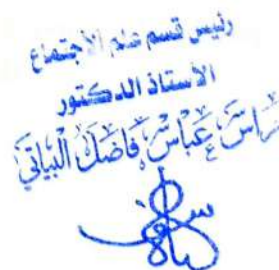 رئيس قسم علم الأجتماع
الأستاذ الدكتور
فراس عباس فاضل البياتي